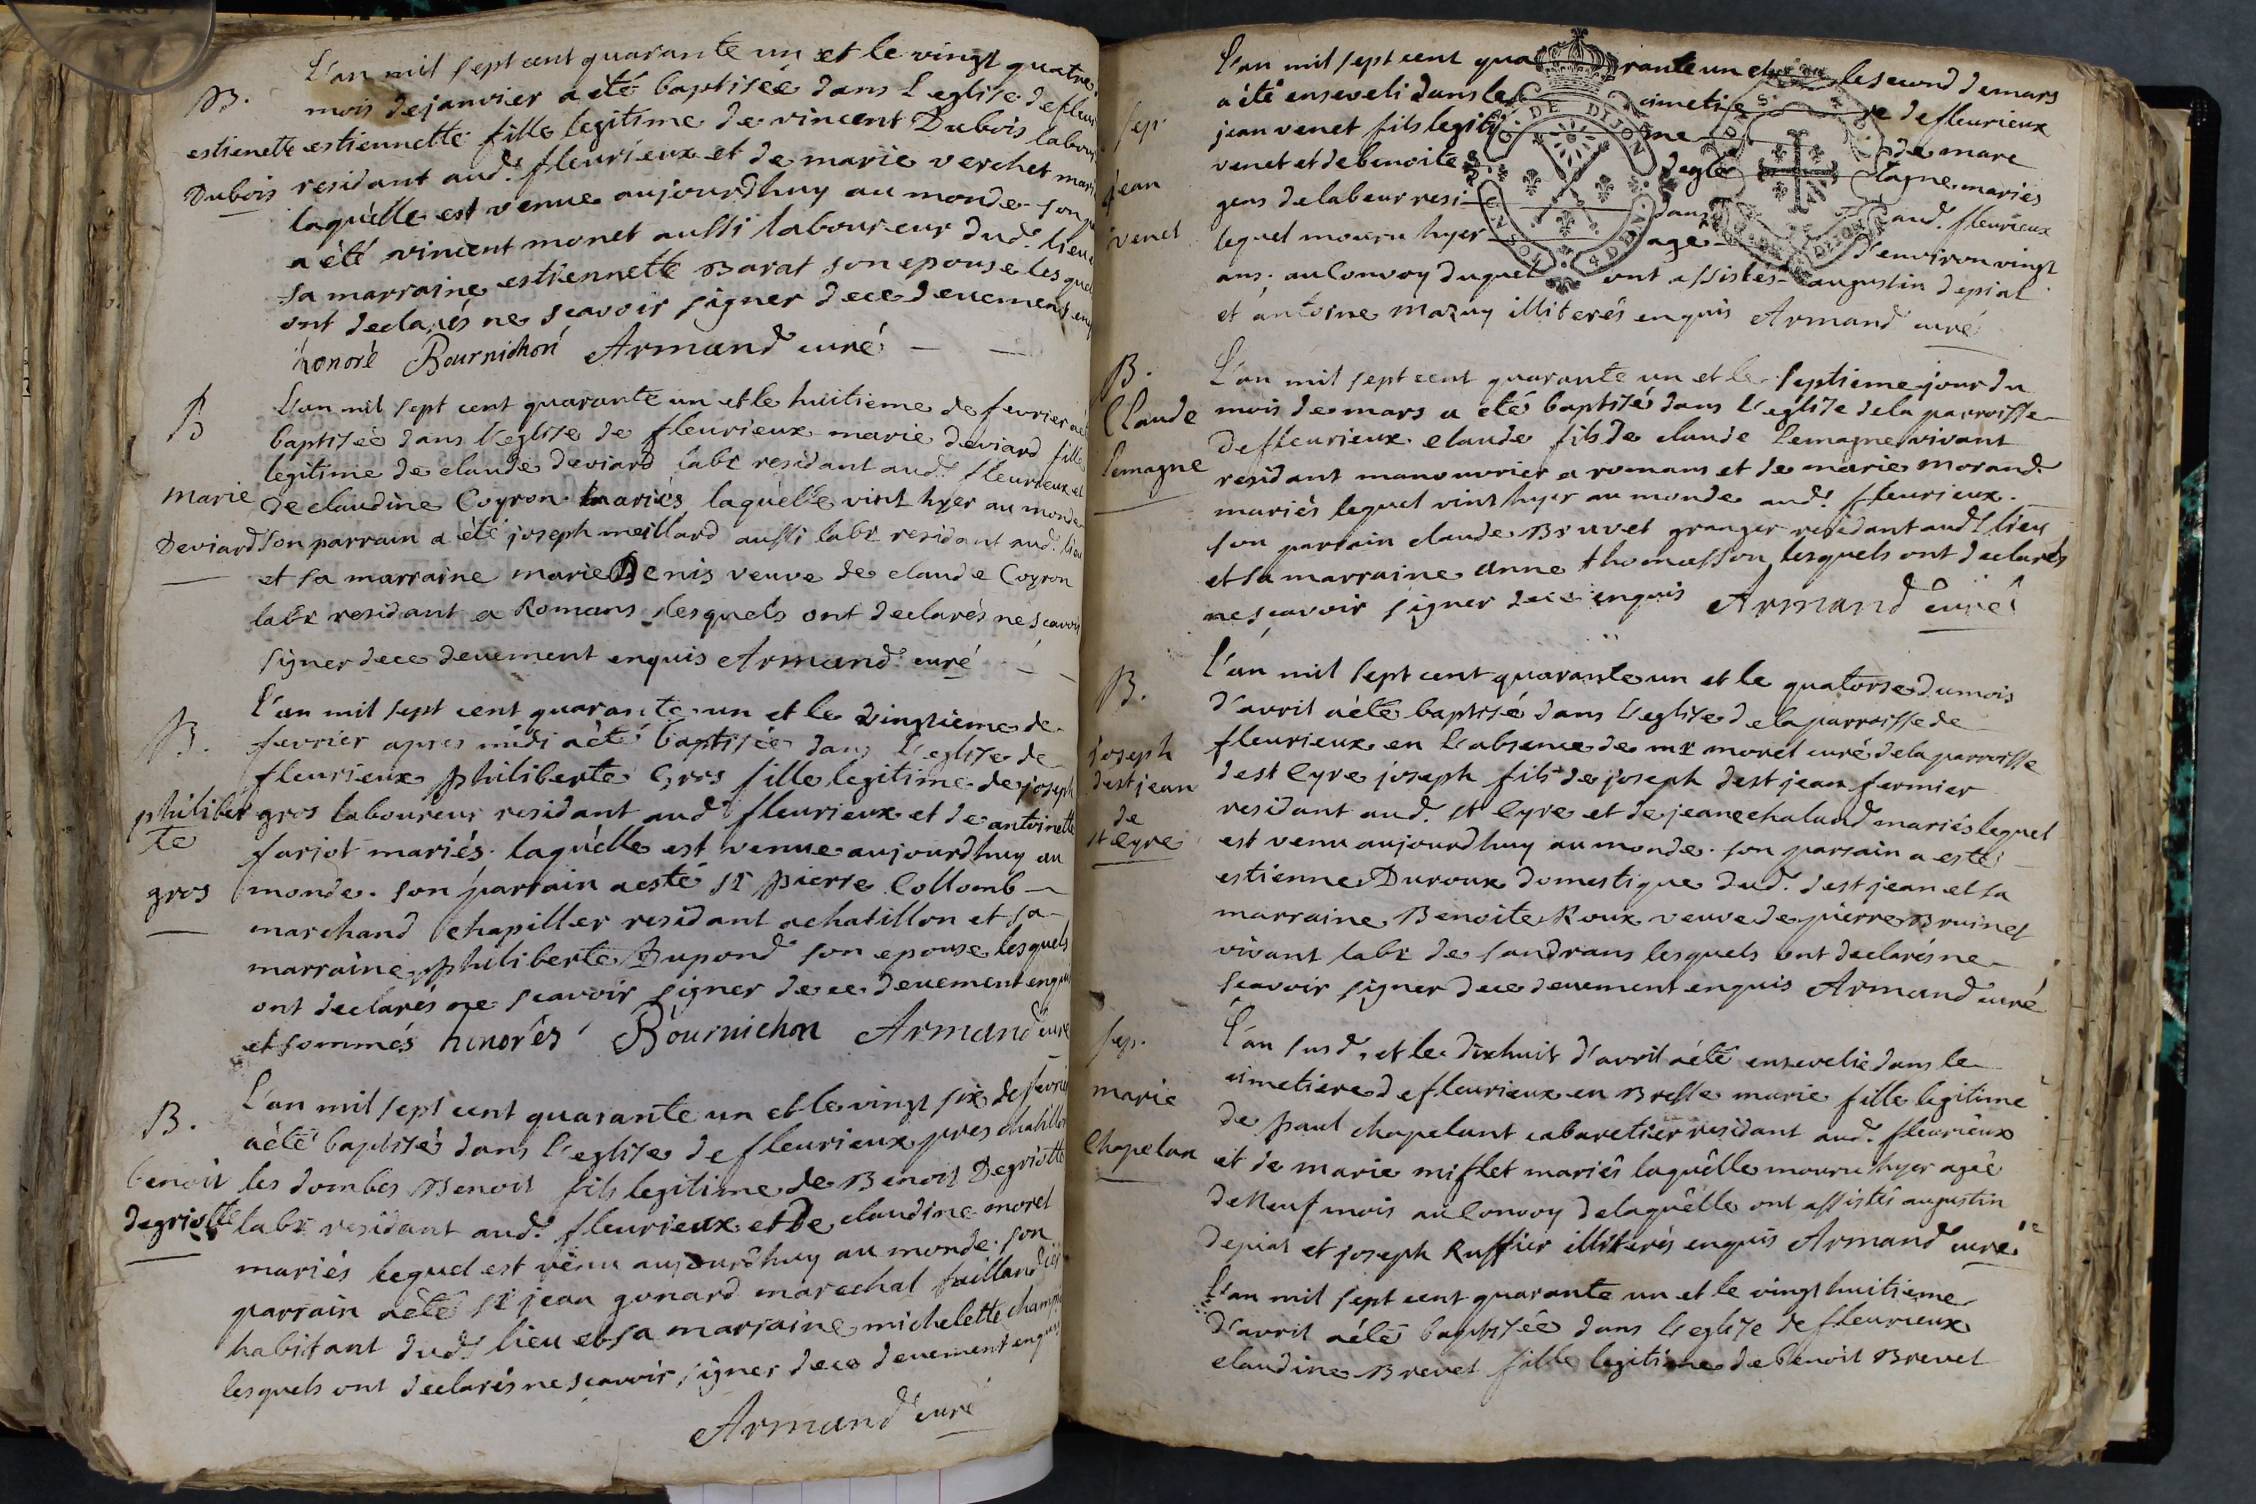 L'an mil sept cent quarante un et le vingt quatre
B.
mois de janvier a été baptisée dans l'eglise de fleur
estienette estiennette fille legitime de vincent Dubois labour
Dubois residant aud. fleurieux et de marie verchet mari
laquelle est venue aujourdhuy au monde son
a été vincent monet aussi laboureur dud. lieu
sa marraine estiennette Barat son epouse lesquel
ont declarés ne scavoir signer de ce deuement enq
honoré Bournichon Armand curé
B
L'an mil sept cent quarante un et le huitieme de fevrier a été
baptisée dans l'eglise de fleurieux marie deviard fille
legitime de claude deviard labr residant aud. fleurieux et
marie de claudine Coyron mariés, laquelle vint hyer au monde
Deviard son parrain a été joseph meillard aussi labr residant aud. lieu
et sa marraine marie Denis veuve de claude Coyron
labr residant a Romans lesquels ont declarés ne scavoir
signer de ce deuement enquis Armand curé
L'an mil sept cent quarante un et le vingtieme de
B.
fevrier apres midi a été baptisée dans l'eglise de
fleurieux philiberte Gros fille legitime de joseph
philiber gros laboureur residant aud. fleurieux et de antoinette
te
farjot mariés. laquelle est venue aujourdhuy au
gros monde. son parrain a esté sr pierre Collomb
marchand chapillier residant a chatillon et sa
marraine philiberte Dupond son epouse lesquels
ont declarés ne scavoir signer de ce deuement enqui
et sommés honorés Bournichon Armand curé
L'an mil sept cent quarante un et le vingt six de fevrie
B.
a été baptisés dans l'eglise de fleurieux pres chatillon
benoit les dombes Benoit fils legitime de Benoit Degriotte
degriotte labr residant aud. fleurieux et De claudine morel
mariés lequel est venu aujourdhuy au monde. son
parrain a été sr jean gonard marechal taillandier
habitant dud. lieu et sa marraine michelette champ
lesquels ont declarés ne scavoir signer de ce deuement enquis
Armand curé
L'an mil sept cent quarante un et le second de mars
sep.
a été enseveli dans le cimetiere de fleurieux
jean venet fils legitime de marc
jean
venet et de benoite degle lagne mariés
venet
gens de labeur residans aud. fleurieux
lequel mouru hyer agé d'environ vingt
ans. au Convoy duquel ont assistés augustin depial
et antoine mazuy illiterés enquis Armand curé
B.
L'an mil sept cent quarante un et le septieme jour du
Claude mois de mars a été baptisé dans l'eglise de la parroisse
de fleurieux claude fils de claude Lemagne vivant
lemagne residant manouvrier a romans et de marie morand
mariés lequel vint hyer au monde aud. fleurieux.
son parrain claude Bruvet granger residant aud. lieu
et sa marraine anne thomasson lesquels ont declarés
ne scavoir signer de ce enquis Armand curé
L'an mil sept cent quarante un et le quatorse du mois
B.
d'avril a été baptisé dans l'eglise de la parroisse de
joseph fleurieux en l'absence de mr morel curé de la parroisse
dest jean dest Cyre joseph fils de joseph dest jean fermier
de
residant aud. st Cyre et de jeane chaland mariés lequel
st Cyre
est venu aujourdhuy au monde. son parrain a esté
estienne Duroux domestique dud. dest jean et sa
marraine Benoite Roux veuve de pierre Bruinet
vivant labr de sandrans lesquels ont declarés ne
scavoir signer de ce deuement enquis Armand curé
sep.
L'an susd. et le dixhuit d'avril a été ensevelie dans le
marie cimetiere de fleurieux en Bresse marie fille legitime
de paul chapelant cabaretier residant aud. fleurieux
Chapelan et de marie miflet mariés laquelle mouru hyer agée
de Neuf mois au Convoy de laquelle ont assistés augustin
depial et joseph Ruffier illiterés enquis Armand curé
L'an mil sept cent quarante un et le vingt huitieme
d'avril a été baptisée dans l'eglise de fleurieux
claudine Brevet fille legitime de benoit Brevet
G. DE DIJON